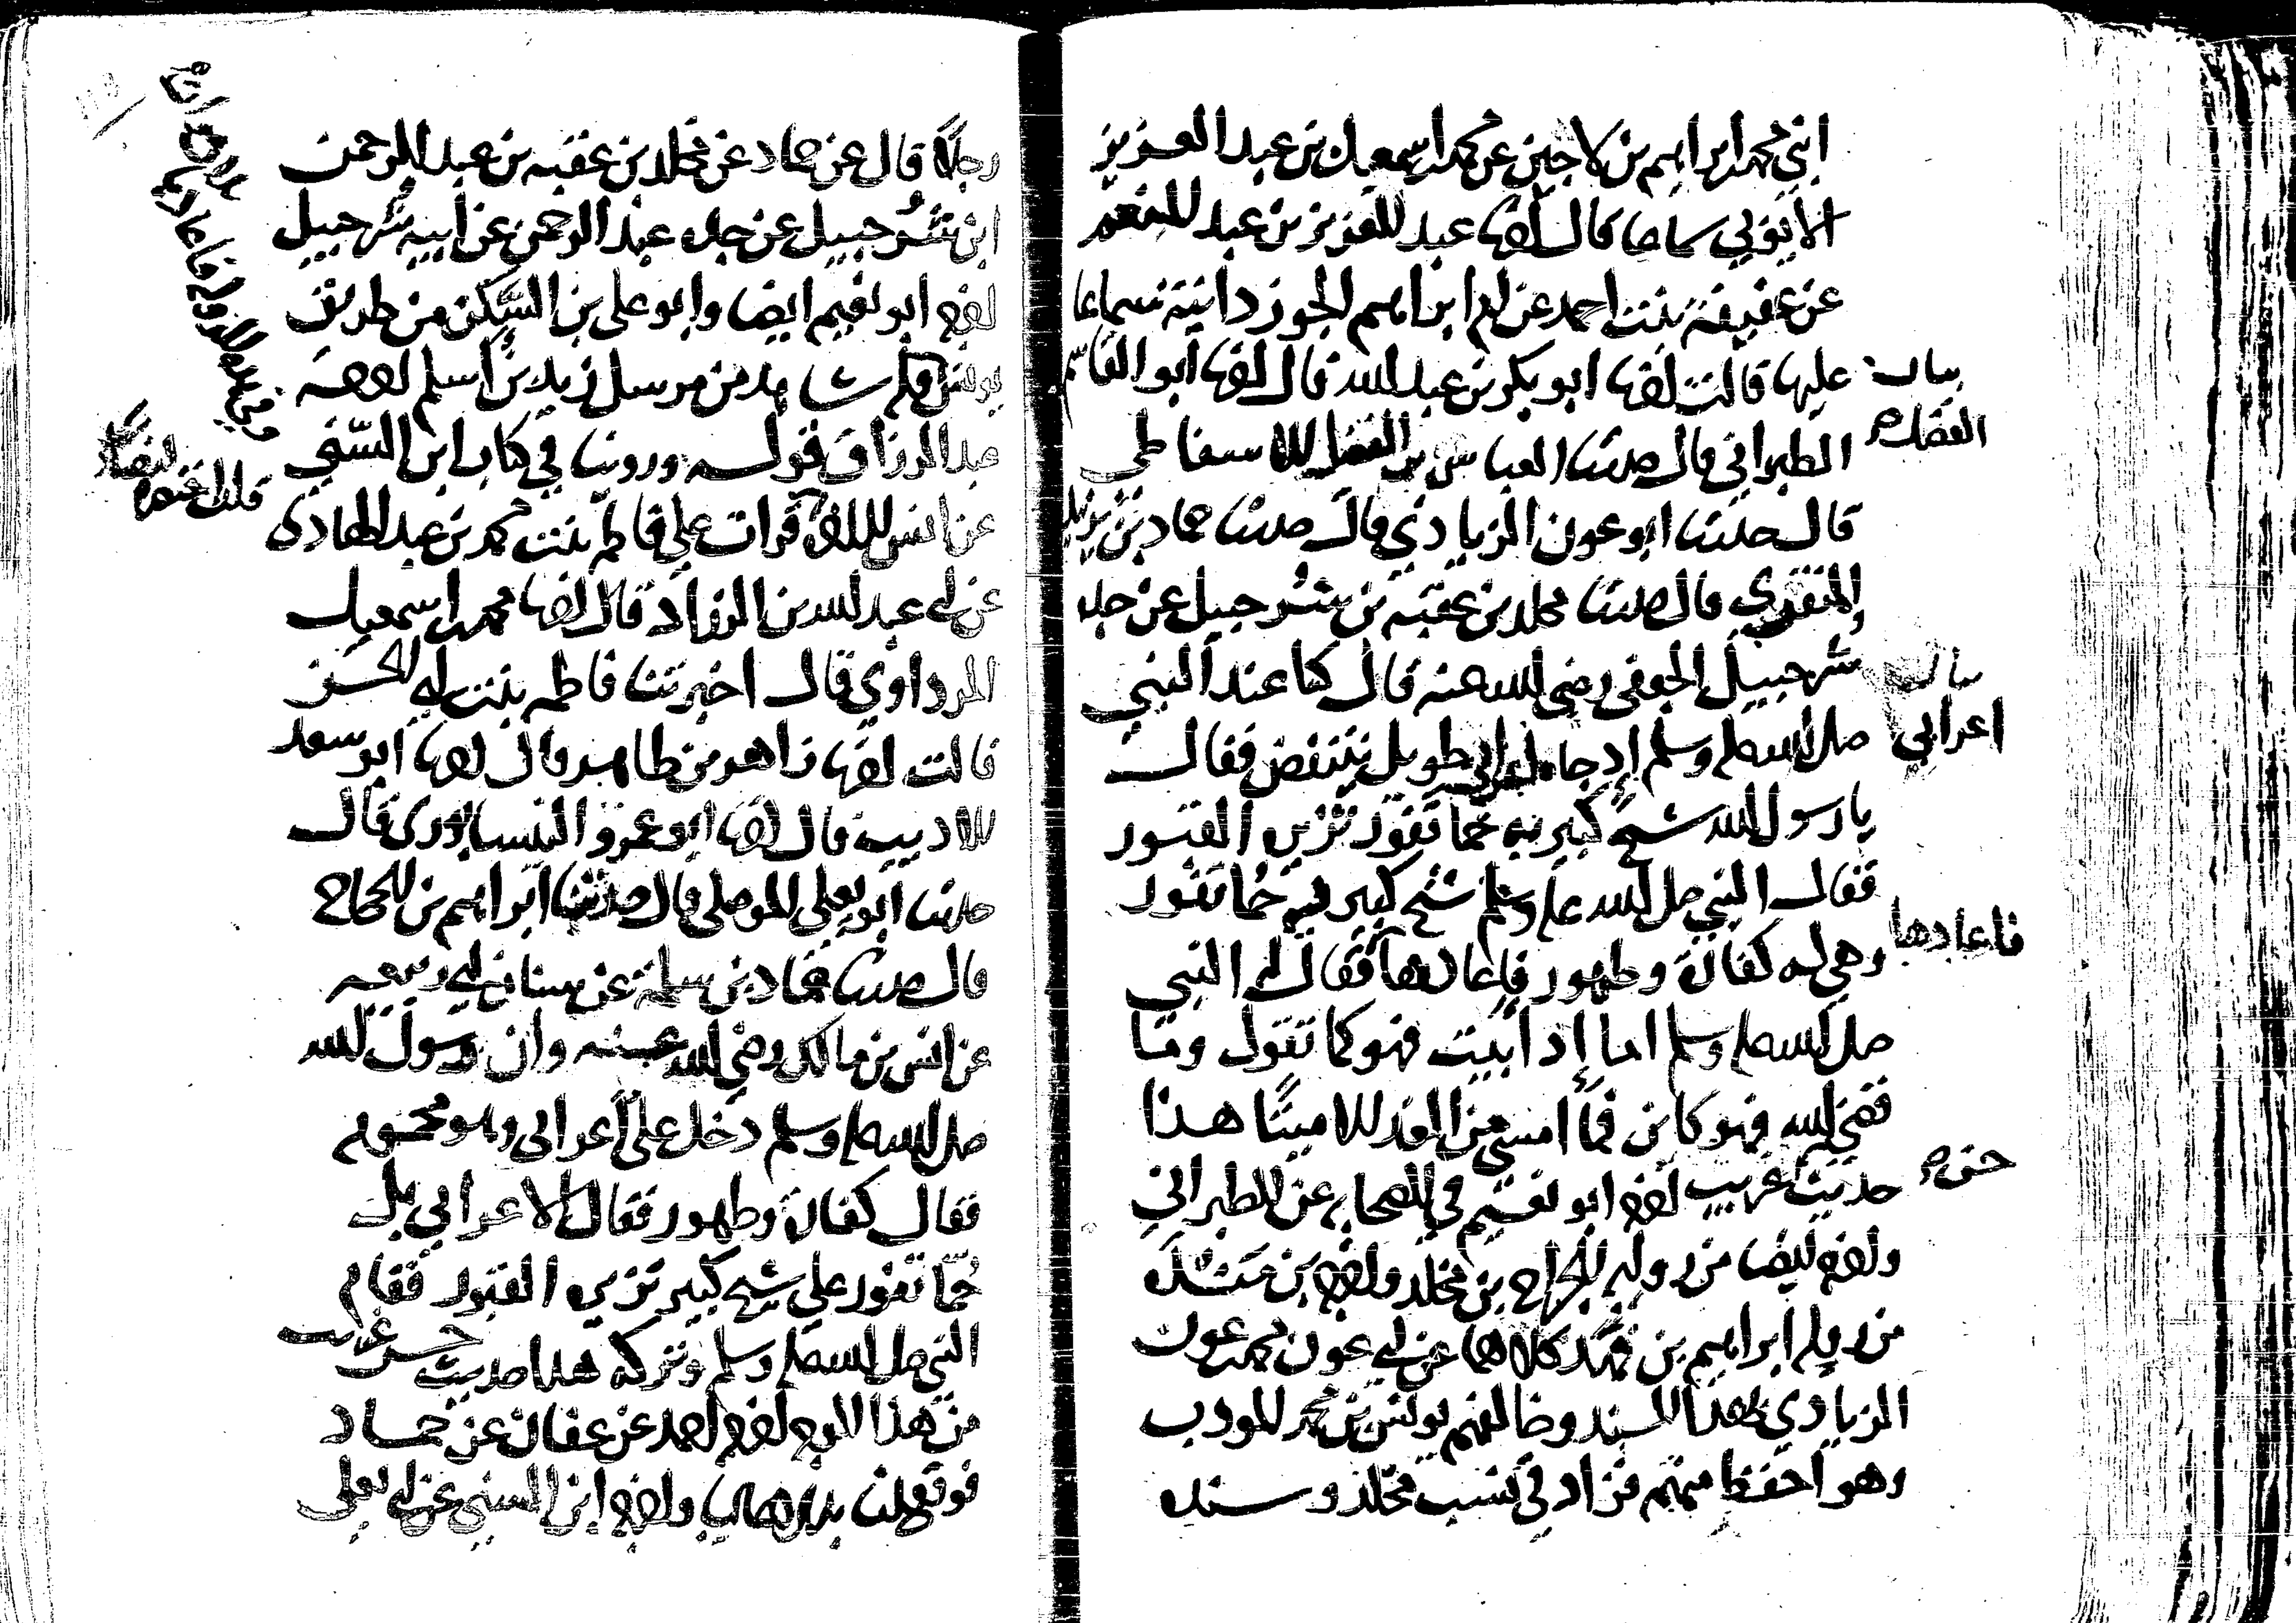 انبي محمد ابراهيم بن لاجين عن محمد اسمعيل بن عبد العزيز
الايوبي سماعا قال انا عبد العزيز بن عبد المنعم
عن عفيفة بنت احمد عن ام ابراهيم الجوزدانية سماعا
عليها قالت انا ابو بكر بن عبد الله قال انا ابو القاسم
الطبراني قال حدثنا العباس بن الفضل الاسفاطي
قال حدثنا ابو عون الزيادي قال حدثنا حماد بن يزيد
المنقري قال حدثنا مخلد بن عقبه بن شرحبيل عن جده
شرحبيل الجعفى رضي الله عنه قال كنا عند النبي
صلى الله عليه وسلم إد جاه اعرابي طويل ينتفض فقال
يا رسول الله شيخ كبير به حما تفور تزير القبور
فقال النبي صلى الله عليه وسلم شيخ كبير فيه حما تفور
وهي له كفارة وطهور فاعادها فقال له النبي
صلى الله عليه وسلم اما إد ابيت فهو كما تقول وما
قضى الله فهو كاين فما امسى من الغد الا ميتا هذا
حديث غريب اخرجه ابو نعيم في الصحابه عن الطبراني
واخرجه ايضا من روايه الجراح بن مخلد واخرجه بن منده
من روايه ابراهيم بن فهد كلاهما عن ابي عون محمد بن عون
الزيادي بهذا السند وخالفهم يونس بن محمد المودب
وهو احفظ منهم فزاد في نسب مخلد وسنده
بيان
الفضل ه
بيان
اعرابي
فاعادها
حـ ه
رجلا قال عن حماد عن مخلد بن عقبه بن عبد الرحمن
ابن شرحبيل عن جده عبد الرحمن عن ابيه شرحبيل
اخرجه ابو نعيم ايضا وابو على بن السكن من طريق
يونس وله شاهد من مرسل زيد بن أسلم اخرجه
عبد الرزاق قوله وروينا في كتاب ابن السني
عن انس قرات على فاطمه بنت محمد بن عبد الهادى
عن ابي عبد الله بن الزراد قال انا محمد بن اسمعيل
المرداوي قال اخبرتنا فاطمه بنت ابي الحسن
قالت انا زاهر بن طاهر قال انا ابو سعد
الاديب قال انا ابو عمرو النيسابوري قال
حدثنا ابو يعلى الموصلي قال حدثنا ابراهيم بن الحجاج
قال حدثنا حماد بن سلمة عن سنان ابي ربيعه
عن انس بن مالك رضي الله عنه وان رسول الله
صلى الله عليه وسلم دخل على اعرابى وهو محموم
فقال كفارة وطهور فقال الاعرابي بل
حما تفور على شيخ كبير تزير القبور فقام
النبي صلى الله عليه وسلم وتركه هذا حديث حسن غريب
من هذا الوجه اخرجه احمد عن عفان عن حماد
فوقع لنا بدلا عاليا واخرجه ابن السني عن ابي يعلى